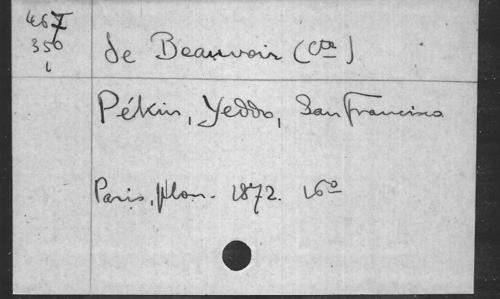 467
350
1
de Beauvoir (Cte)
Pékin, Yeddo, San Francisco
Paris, Plon. 1872. 16o